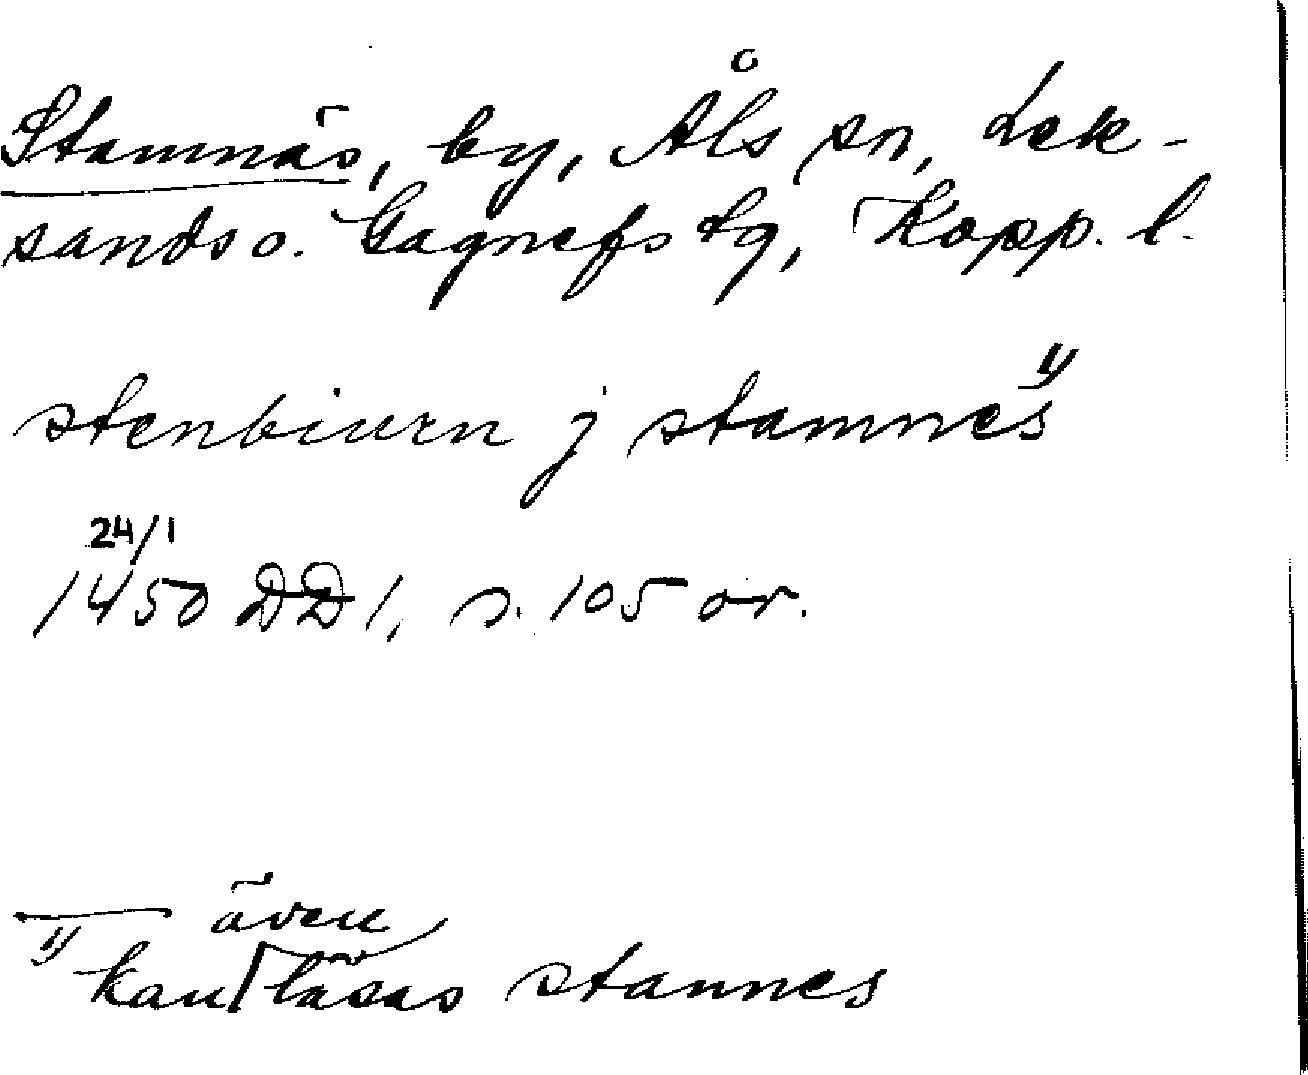 Stamnäs, by, Åls sn, Lek-
sands o. Gagnefs tg, Kopp. l.
stenbiurn j stamnes 1)
24/1
1450 DD 1, s. 105 or.
1) kan även läsas stannes